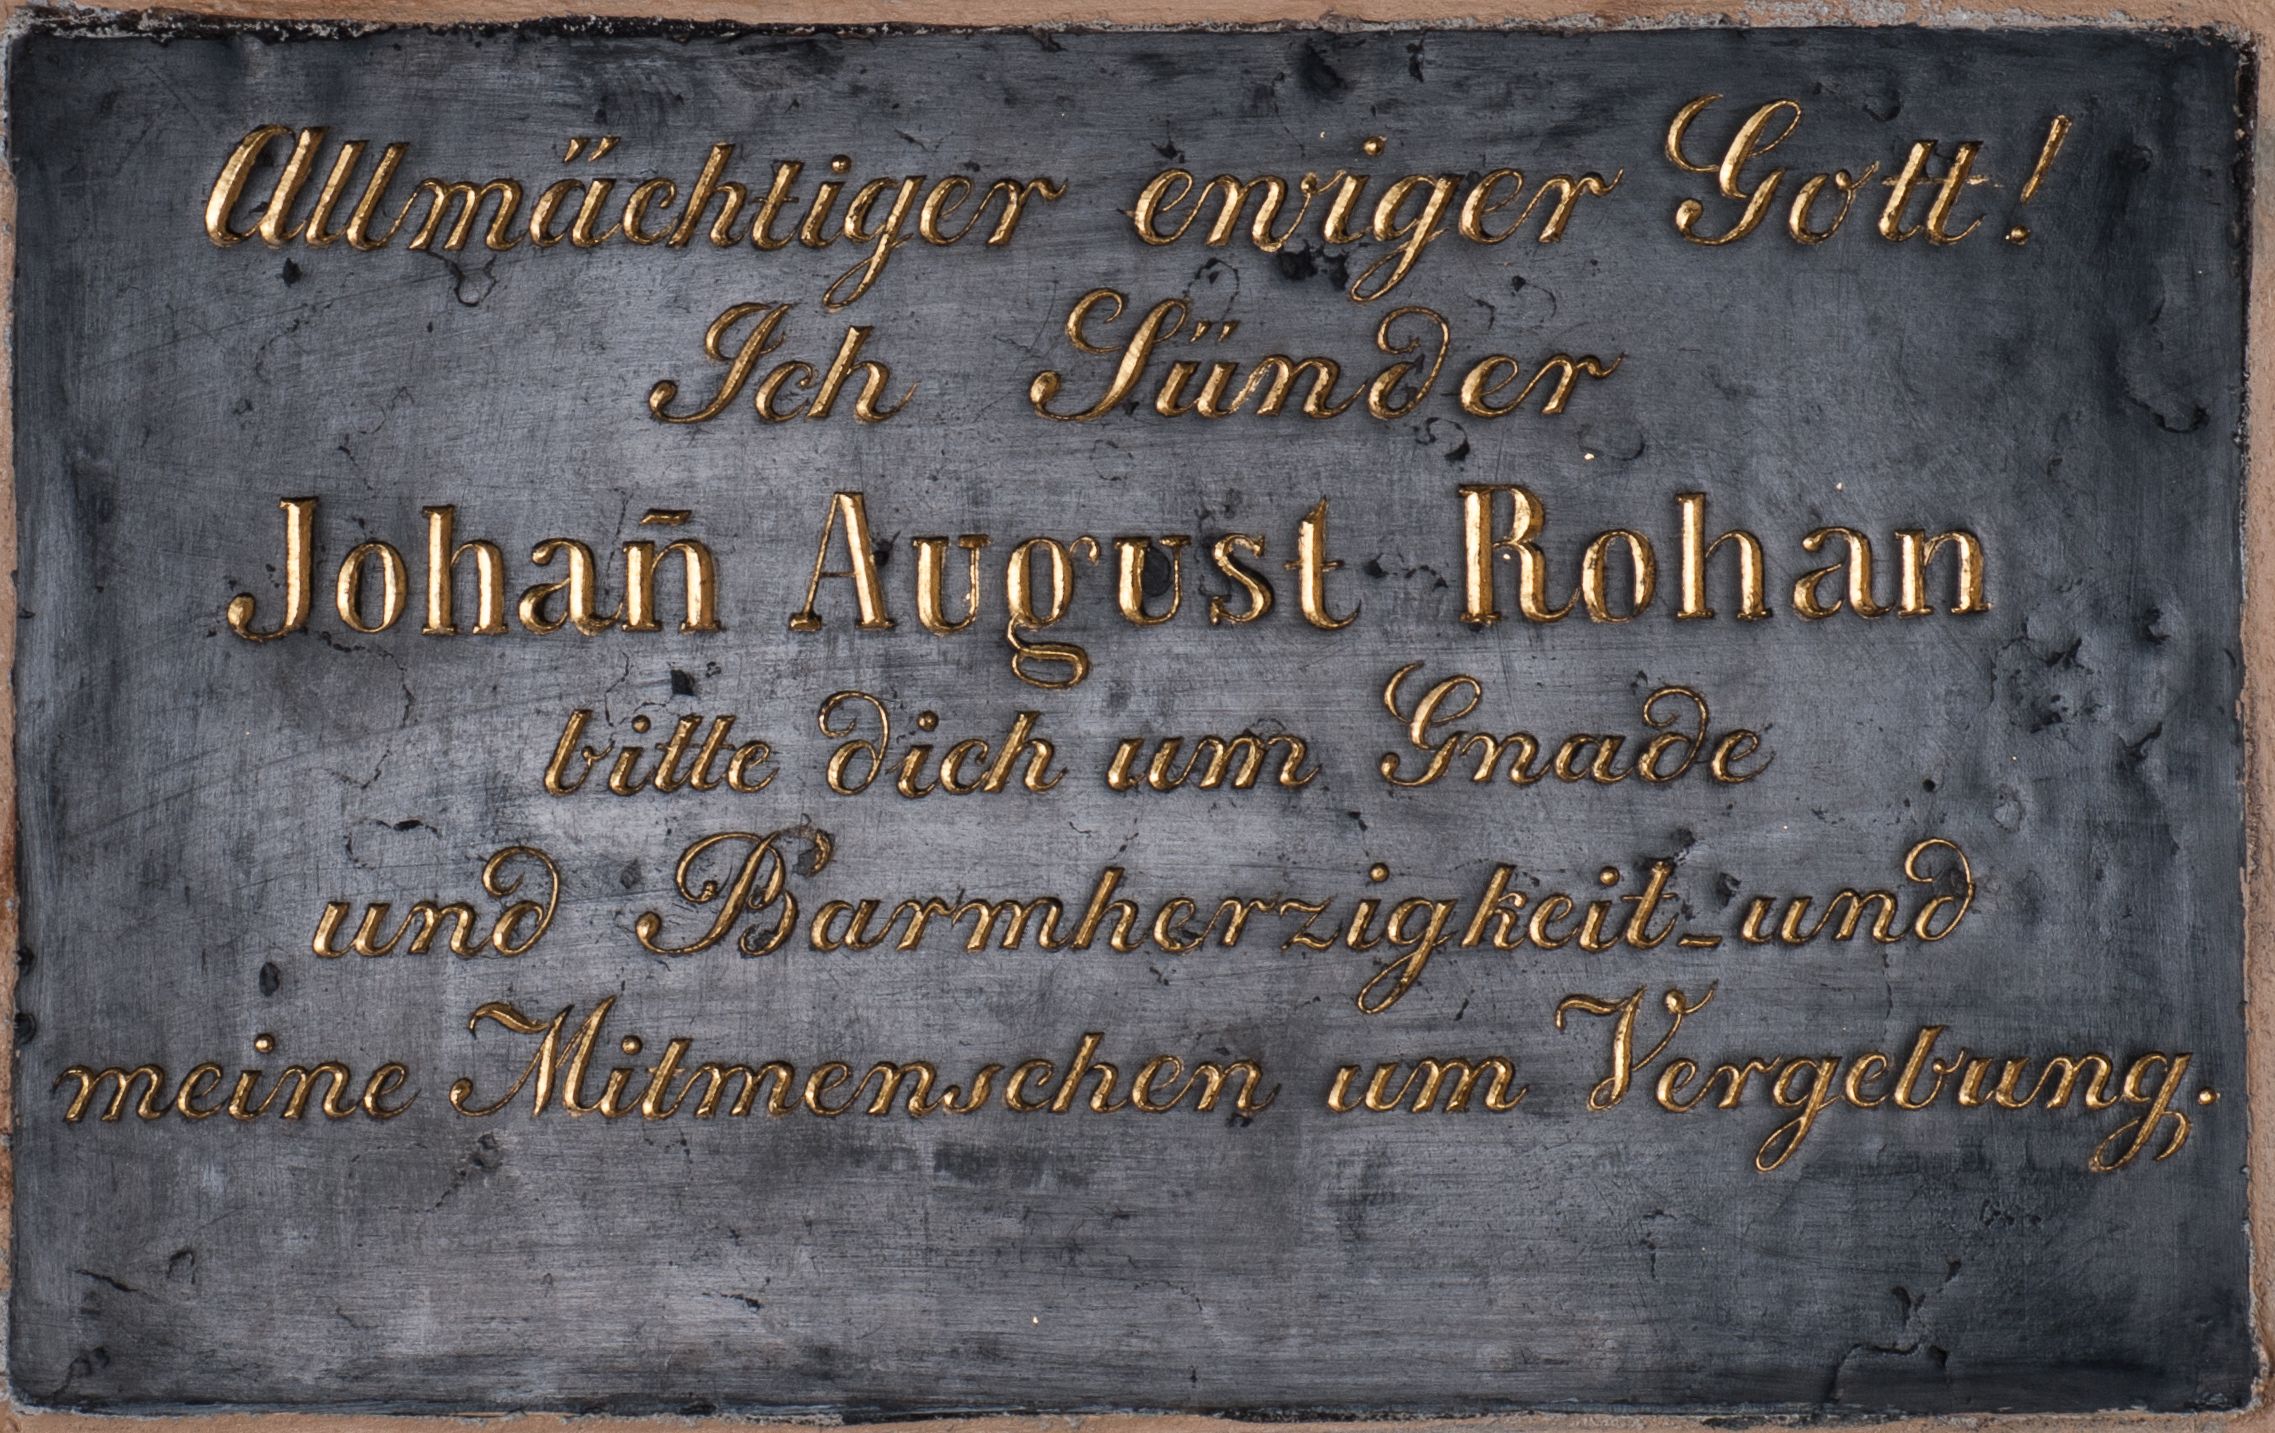 Allmächtiger ewiger Gott!
Ich Sünder
Johañ August Rohan
bitte dich um Gnade
und Barmherzigkeit-und
meine Mitmenschen um Vergebung.